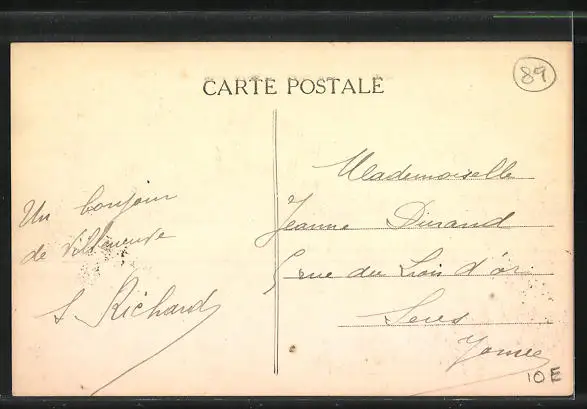 CARTE POSTALE
89
Un bonjour
de Villeneuve
S. Richard
Mademoiselle
Jeanne Durand
5 rue du Lion d'or
Sens
Yonne
10E